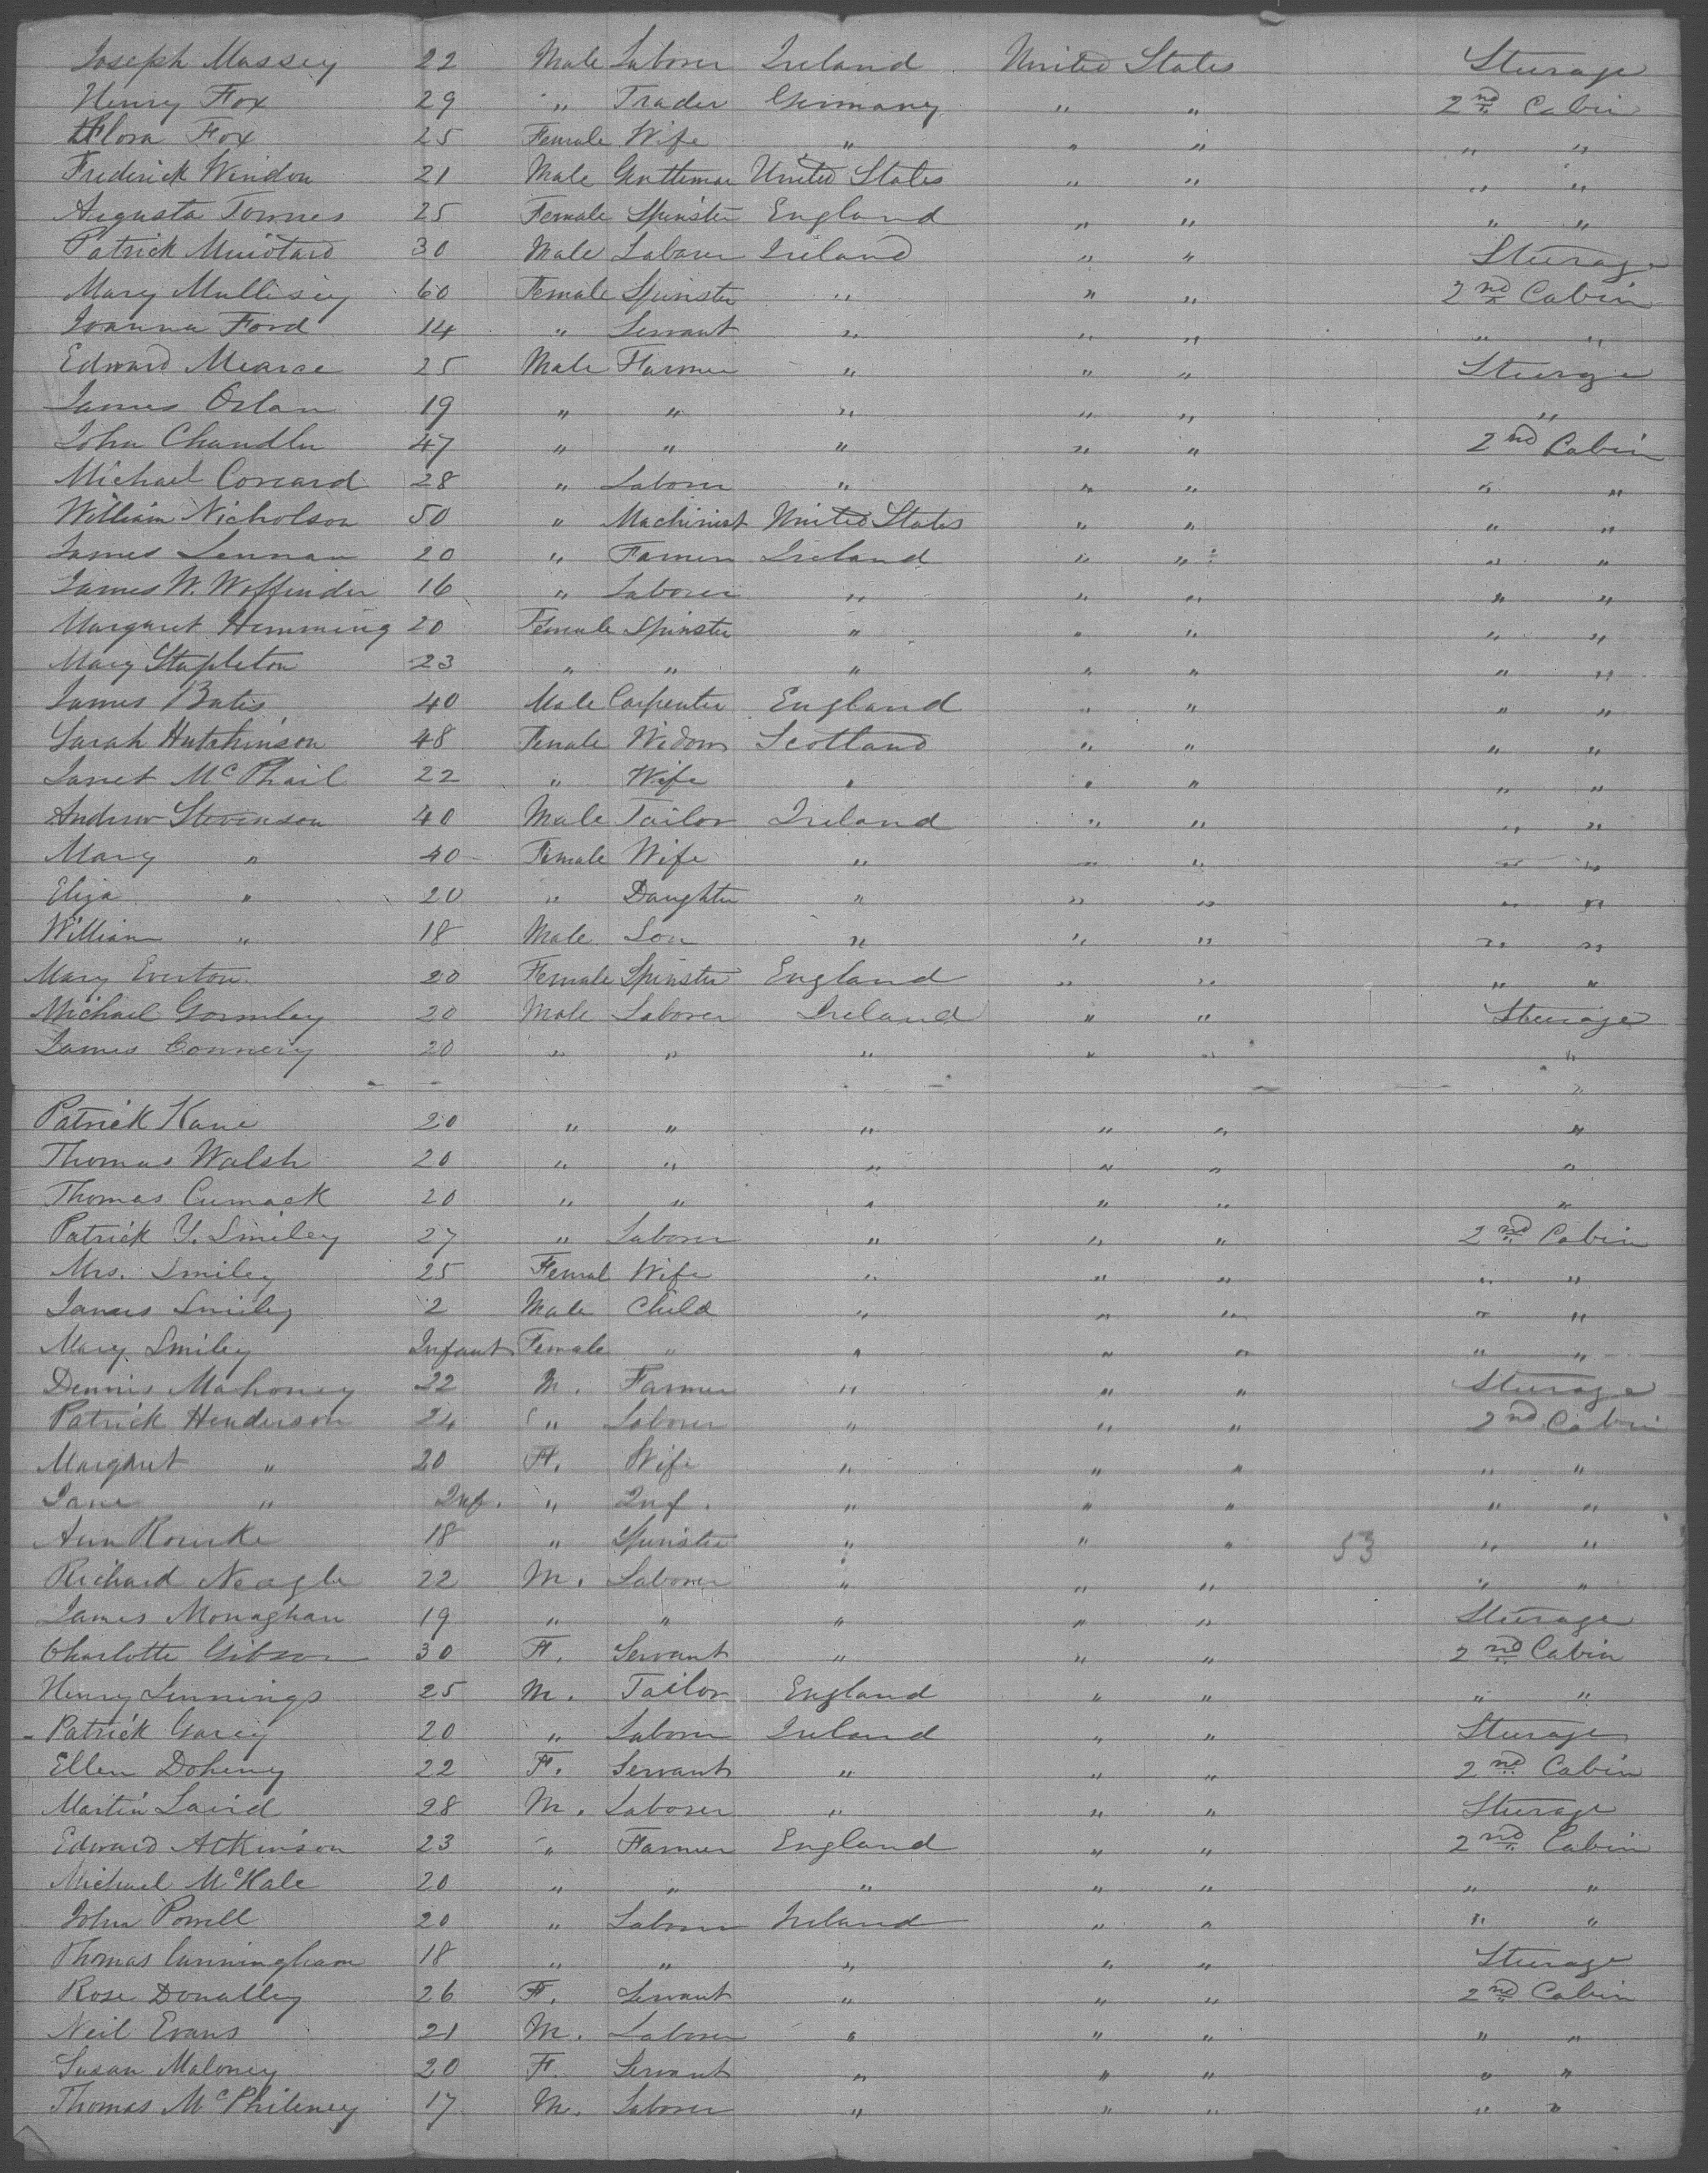 Joseph Massey 22 Male Laborer Ireland United States Sturage
Henry Fox 29 " Trader Germany " " 2nd Cabin
Flora Fox 25 Female Wife " " " " "
Frederick Windon 21 Male Gentleman United States " " " "
Augusta Townes 25 Female Spinster England " " " "
Patrick 30 Male Laborer Ireland " " Sturage
Mary 60 Female Spinster " " " 2nd Cabin
Joanna Ford 14 " Servant " " " " "
Edward Mearce 25 Male Farmer " " " Sturage
James Orlan 19 " " " " " "
John Chandler 47 " " " " " 2nd Cabin
Michael Corcard 28 " Laborer " " " " "
William Nicholson 50 " Machinist United States " " " "
James Lennan 20 " Farmer Ireland " " " "
James W. Woffinder 16 " Laborer " " " " "
Margaret Hemming 20 Female Spinster " " " " "
Mary Stapleton 23 " " " " " " "
James Bates 40 Male Carpenter England " " " "
Sarah Hutchinson 48 Female Widow Scotland " " " "
Janet McPhail 22 " Wife " " " " "
Andrew Stevenson 40 Male Tailor Ireland " " " "
Mary " 40 Female Wife " " " " "
Eliza " 20 " Daughter " " " " "
William " 18 Male Son " " " " "
Mary Everton 20 Female Spinster England " " " "
Michael Gormley 20 Male Laborer Ireland " " Sturage
James Connery 20 " " " " " "
"
Patrick Kane 20 " " " " " "
Thomas Walsh 20 " " " " " "
Thomas Cumack 20 " " " " " "
Patrick Y. Smiley 27 " Laborer " " " 2nd Cabin
Mrs. Smiley 25 Femal Wife " " " " "
James Smiley 2 Male Child " " " " "
Mary Smiley Infant Female " " " " " "
Dennis Mahoney 22 M. Farmer " " " Sturage
Patrick Henderson 24 " Laborer " " " 2nd Cabin
Margaret " 20 F. Wife " " " " "
Jane " Inf. " Inf. " " " " "
Ann Rourke 18 " Spinster " " " 53 " "
Richard Neagle 22 M. Laborer " " " " "
James Monaghan 19 " " " " " Sturage
Charlotte Gibson 30 F. Servant " " " 2nd Cabin
Henry Jennings 25 M. Tailor England " " " "
Patrick Garey 20 " Laborer Ireland " " Sturage
Ellen Doheny 22 F. Servant " " " 2nd Cabin
Martin Laird 28 M. Laborer " " " Sturage
Edward Atkinson 23 " Farmer England " " 2nd Cabin
Michael McKale 20 " " " " " " "
John Powell 20 " Laborer Ireland " " " "
Thomas Cunningham 18 " " " " " Sturage
Rose Donalley 26 F. Servant " " " 2nd Cabin
Neil Evans 21 M. Laborer " " " " "
Susan Maloney 20 F. Servant " " " " "
Thomas McPhileney 17 M. Laborer " " " " "